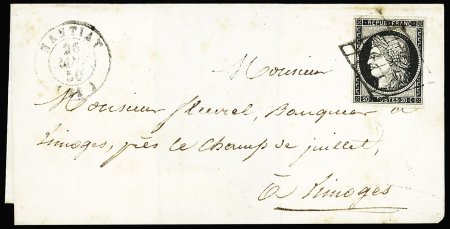 NANTIAT
26
50
REPUB. FRANC.
20 POSTES 20
Monsieur
Monsieur fleurel, Banquier à
Limoges, près le Champ de juillet,
à Limoges